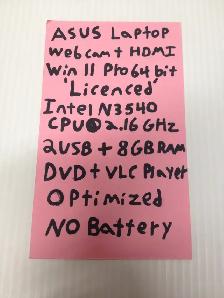 ASUS Laptop
Webcam + HDMI
Win 11 Pro 64 bit
'Licenced'
Intel N3540
CPU@2.16 GHz
2USB + 8GB RAM
DVD + VLC Player
OPtimized
NO Battery